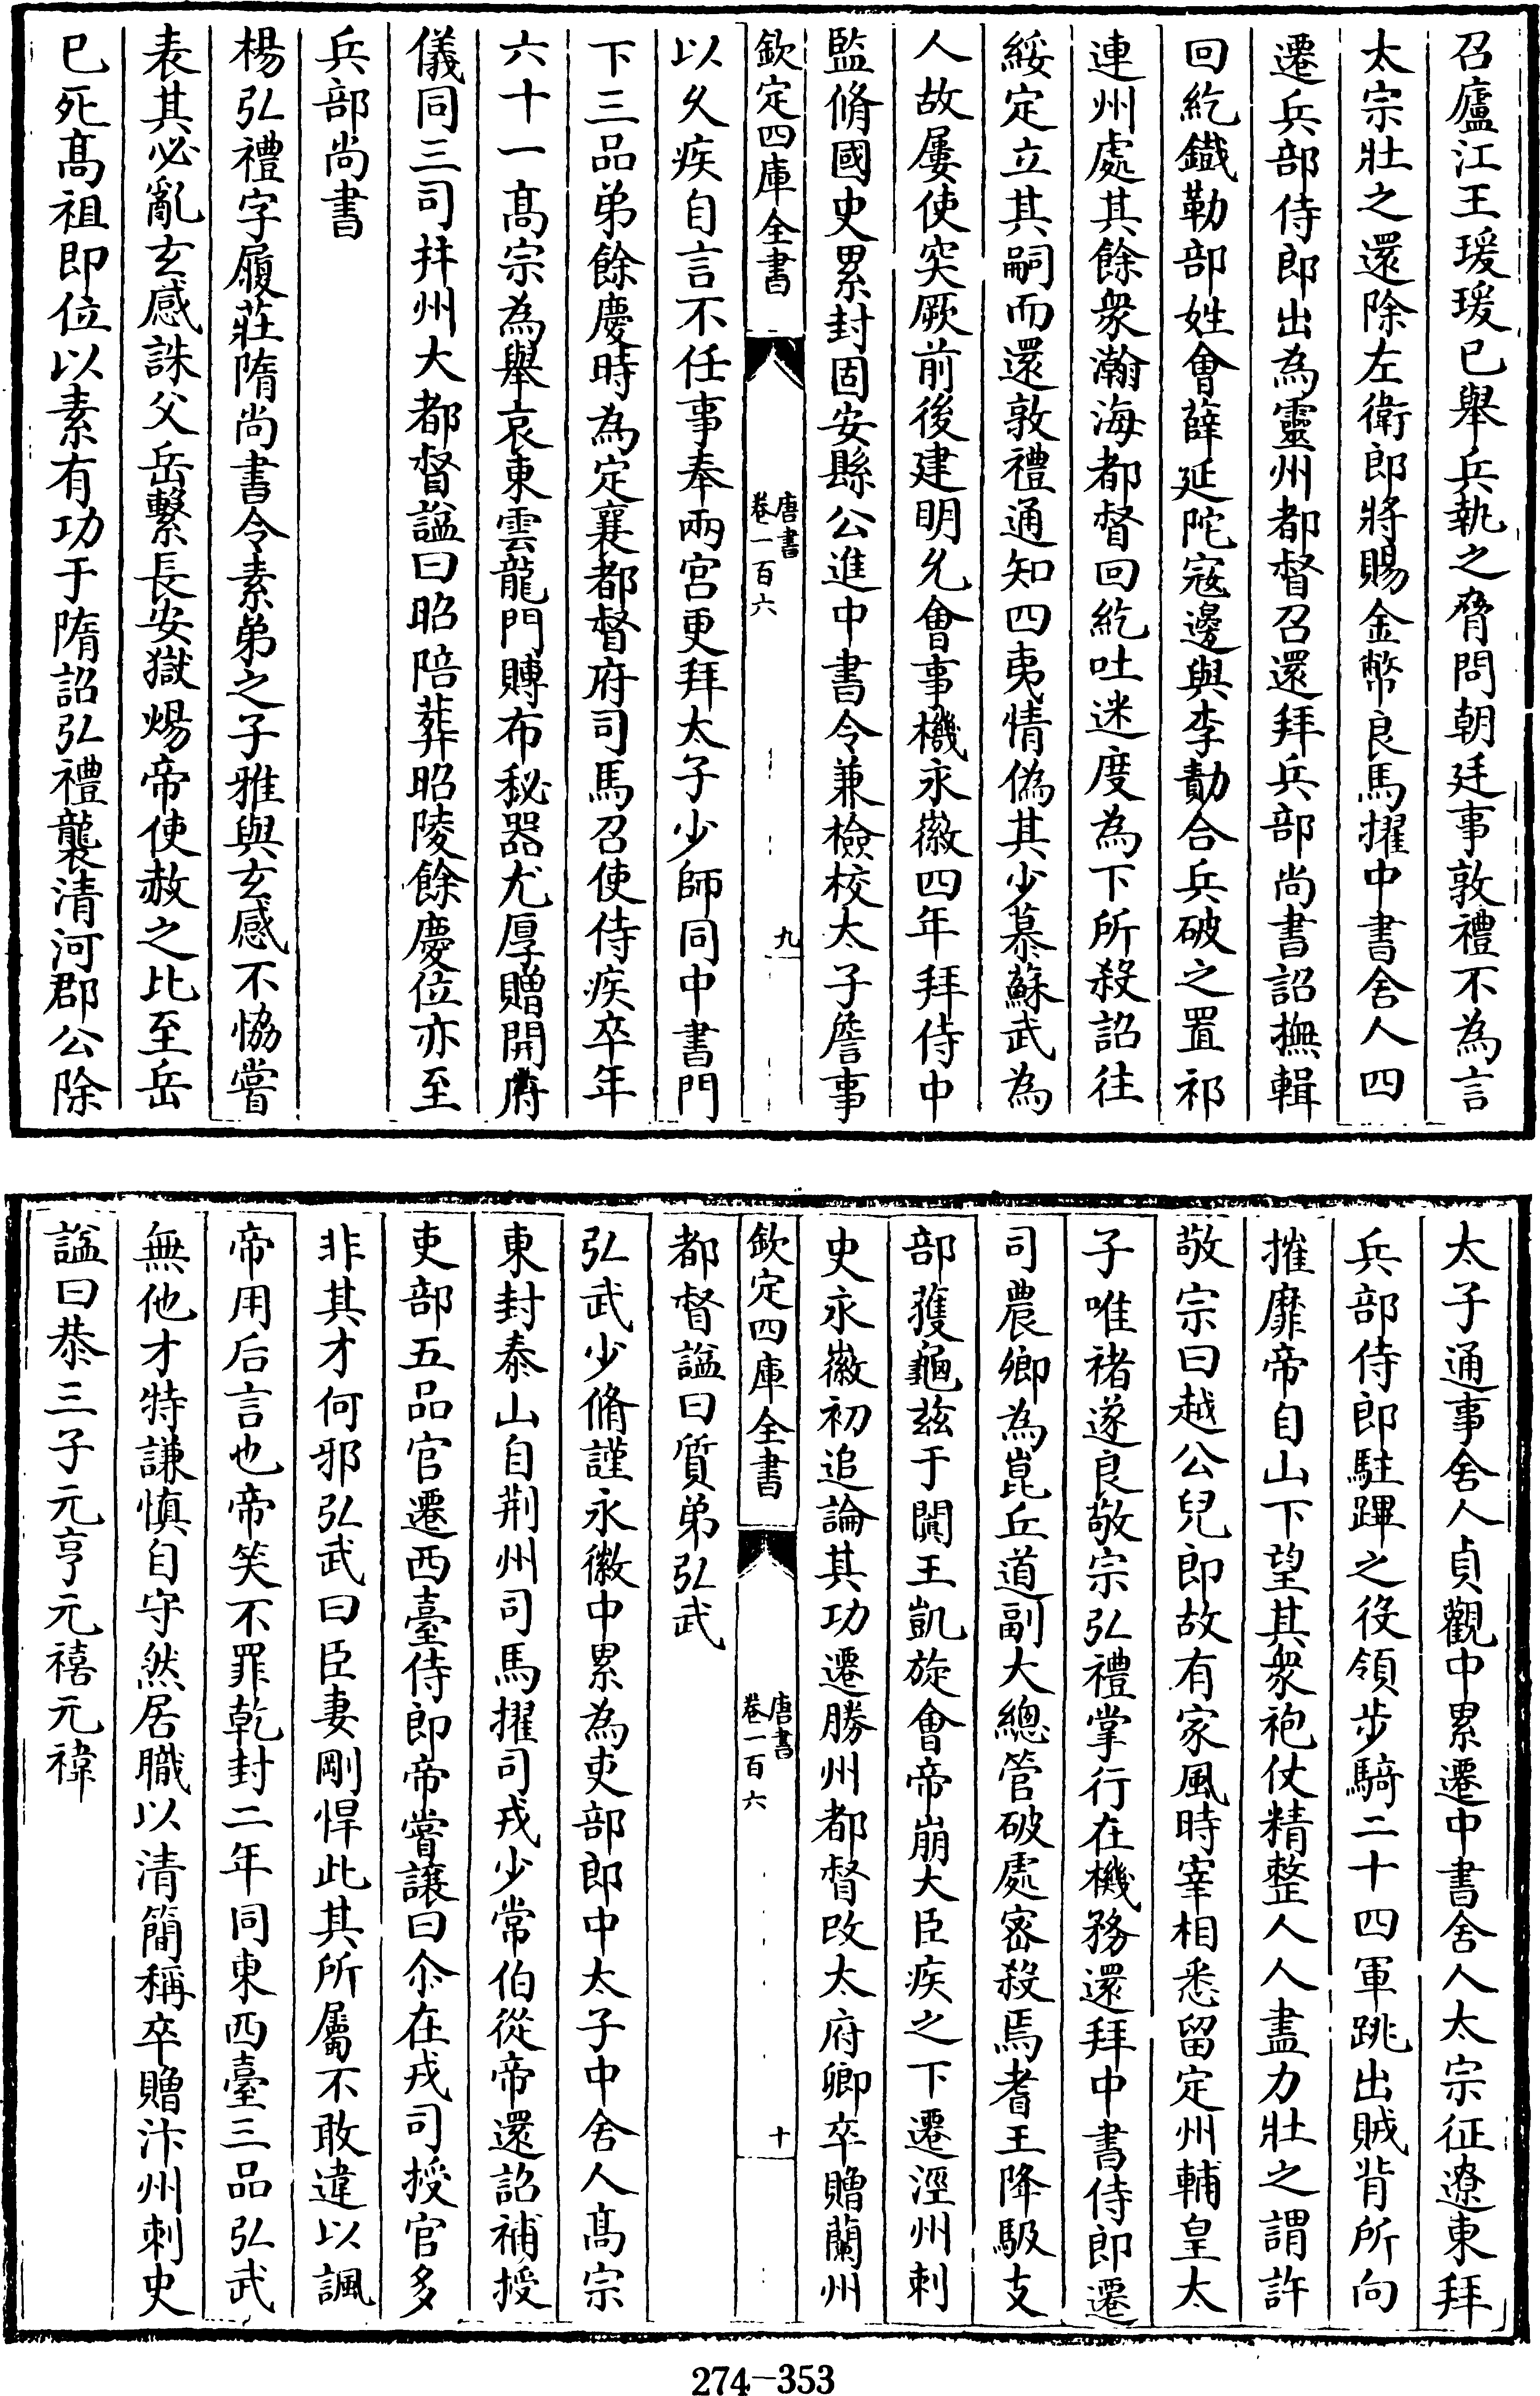 召廬江王瑗瑗已舉兵執之脅問朝廷事敦禮不為言
太宗壯之還除左衛郎將賜金幣良馬擢中書舍人四
遷兵部侍郎出為靈州都督召還拜兵部尚書詔撫輯
回紇鐵勒部姓會薛延陀寇邊與李勣合兵破之置祁
連州處其餘衆瀚海都督回紇吐迷度為下所殺詔往
綏定立其嗣而還敦禮通知四夷情偽其少慕蘇武為
人故屢使突厥前後建明允會事機永徽四年拜侍中
監脩國史累封固安縣公進中書令兼檢校太子詹事
欽定四庫全書
唐書
卷一百六
九
以久疾自言不任事奉兩宮更拜太子少師同中書門
下三品弟餘慶時為定襄都督府司馬召使侍疾卒年
六十一髙宗為舉哀東雲龍門賻布秘器尤厚贈開府
儀同三司并州大都督諡曰昭陪葬昭陵餘慶位亦至
兵部尚書
楊弘禮字履莊隋尚書令素弟之子雅與玄感不恊嘗
表其必亂玄感誅父岳繫長安獄煬帝使赦之比至岳
已死髙祖即位以素有功于隋詔弘禮襲清河郡公除
太子通事舍人貞觀中累遷中書舍人太宗征遼東拜
兵部侍郎駐蹕之役領步騎二十四軍跳出賊背所向
摧靡帝自山下望其衆袍仗精整人人盡力壯之謂許
敬宗曰越公兒郎故有家風時宰相悉留定州輔皇太
子唯褚遂良敬宗弘禮掌行在機務還拜中書侍郎遷
司農卿為崑丘道副大總管破處宻殺焉耆王降馺支
部獲龜兹于闐王凱旋會帝崩大臣疾之下遷涇州刺
史永徽初追論其功遷勝州都督改太府卿卒贈蘭州
欽定四庫全書
唐書
卷一百六
十
都督諡曰質弟弘武
弘武少脩謹永徽中累為吏部郎中太子中舍人髙宗
東封泰山自荆州司馬擢司戎少常伯從帝還詔補授
吏部五品官遷西臺侍郎帝嘗讓曰尒在戎司授官多
非其才何邪弘武曰臣妻剛悍此其所屬不敢違以諷
帝用后言也帝笑不罪乾封二年同東西臺三品弘武
無他才特謙慎自守然居職以清簡稱卒贈汴州刺史
諡曰恭三子元亨元禧元禕
274-353